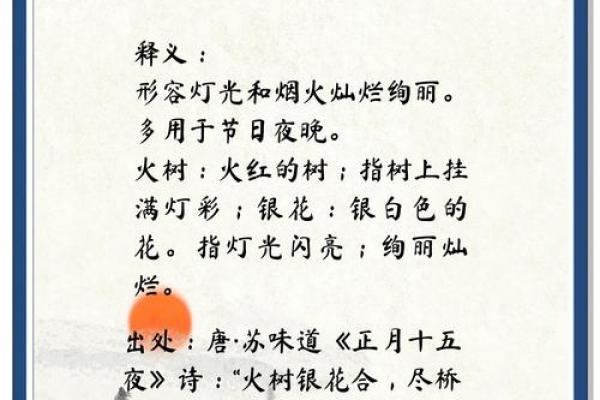 释义：
形容灯光和烟火灿烂绚丽。
多用于节日夜晚。
火树：火红的树；指树上挂
满灯彩；银花：银白色的
花。指灯光闪亮；绚丽灿
烂。
出处：唐·苏味道《正月十五
夜》诗：“火树银花合，尽桥